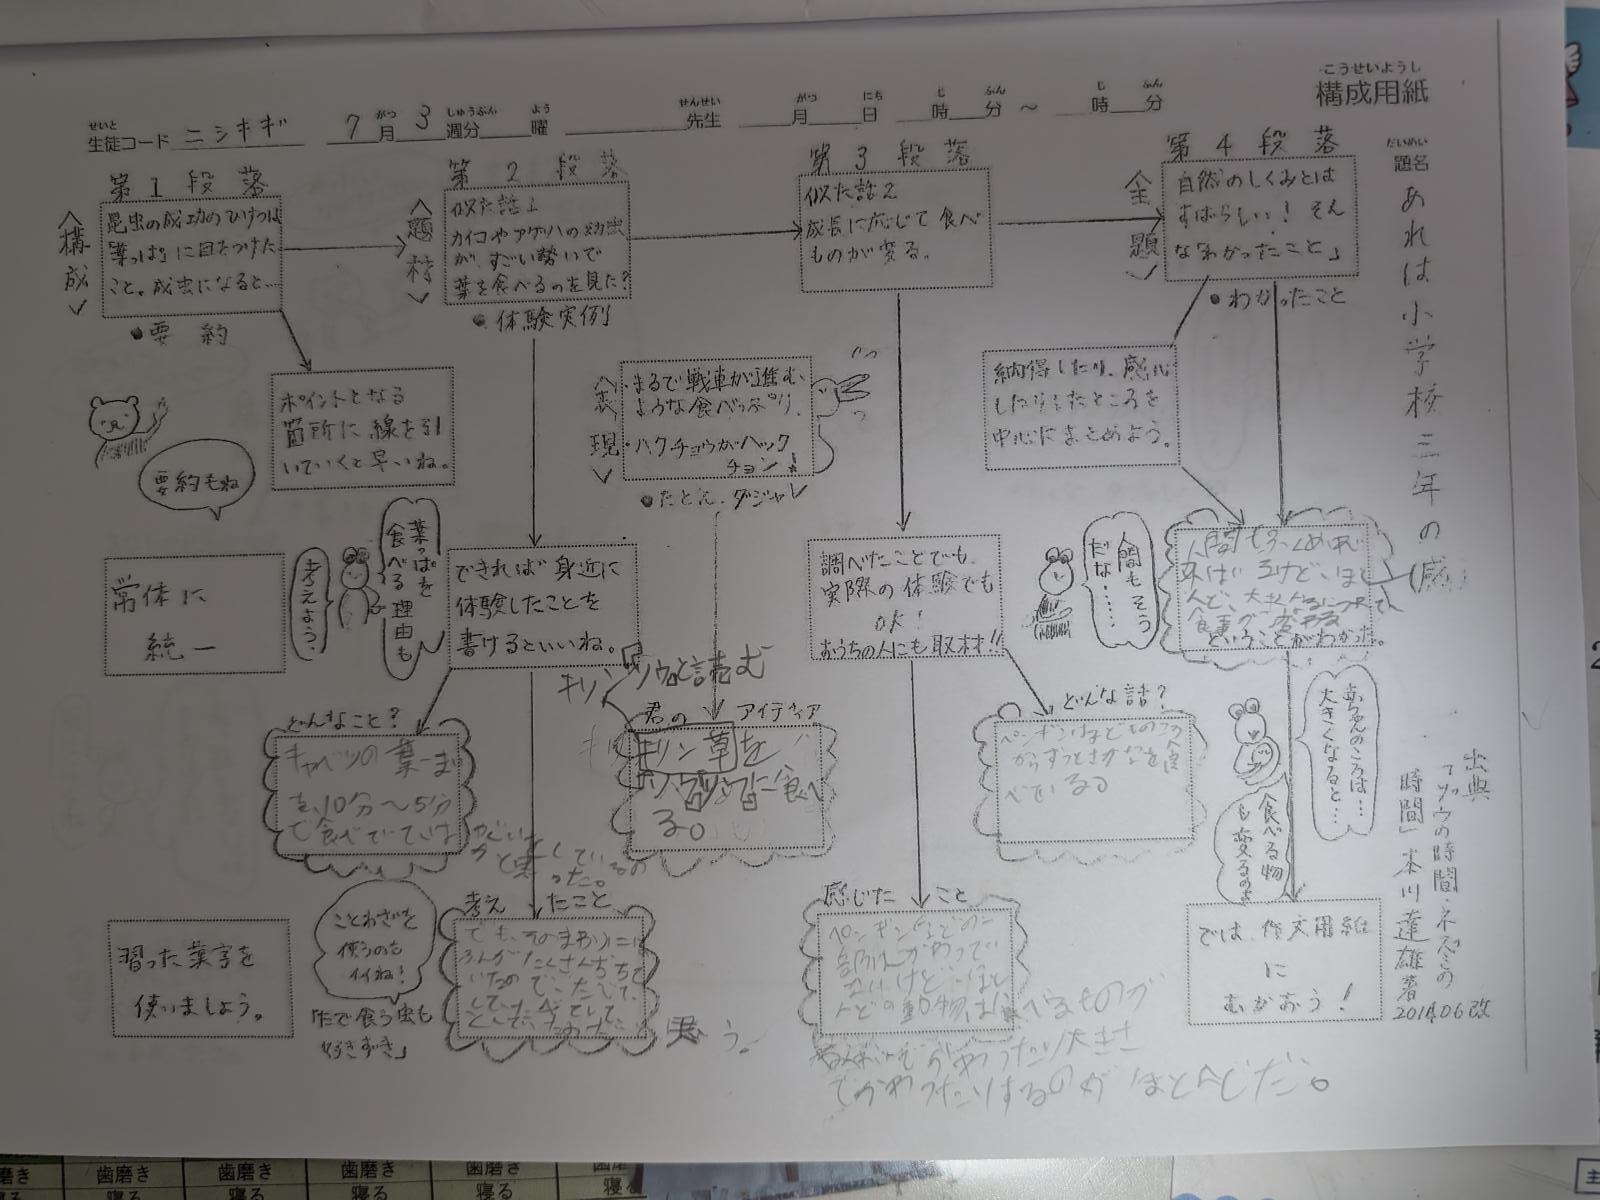 こうせいようし
構成用紙
せいと
生徒コード ニシキギ 7月 3週分 曜 先生 月 日 時 分 ～ 時 分
がつ しゅうぶん よう せんせい がつ にち じ ふん じ ふん
だいめい
題名
あれは小学校三年の
第1段落
＜構成＞
昆虫の成功のひけつは
「葉っぱ」に目をつけた
こと。成虫になると…
●要約
ポイントとなる
箇所に線を引
いていくと早いね。
要約もね
常体に
統一
習った漢字を
使いましょう。
第2段落
＜題材＞
似た話1
カイコやアゲハの幼虫
が、すごい勢いで
葉を食べるのを見た?
●体験実例
できれば身近に
体験したことを
書けるといいね。
葉っぱを
食べる理由も
考えよう。
どんなこと?
キャベツの葉一まい
を、10分～5分
で食べていては
考えたこと
でも、そのまわりには
ふんがたくさんおちて
いたので
思う。
ことわざを
使うのも
イイね!
「たで食う虫も
好きずき」
＜表現＞
・まるで戦車が進む
ような食べっぷり。
・ハクチョウがハック
チョン!
●たとえ、ダジャレ
キリンソウと読む
君のアイディア
キリン草を
食べ
る。
第3段落
似た話2
成長に応じて食べ
ものが変る。
調べたことでも、
実際の体験でも
OK!
おうちの人にも取材!!
どんな話?
ペンギンはこどものころ
からずっとさかなを食
べている
感じたこと
ペンギンなどの
ないけど、ほと
んどの動物は食べるものが
かわったり大きさ
でかわったりするのがほとんどだ。
第4段落
＜全題＞
自然のしくみとは
すばらしい! そん
な「わかったこと」
●わかったこと
納得したり、感心
したりしたところを
中心にまとめよう。
人間もそう
だな……
人間もふくめれ
ほと
んど、大きくなるにつれて
食事が変わる
ということがわかった。
(感)
赤ちゃんのころは…
大きくなると…
食べる物
も変るのよ
では、作文用紙
に
むかおう!
出典
「ゾウの時間・ネズミの
時間」本川達雄著
2014.06改
歯磨き 歯磨き 歯磨き 歯磨き
寝る 寝る 寝る 寝る